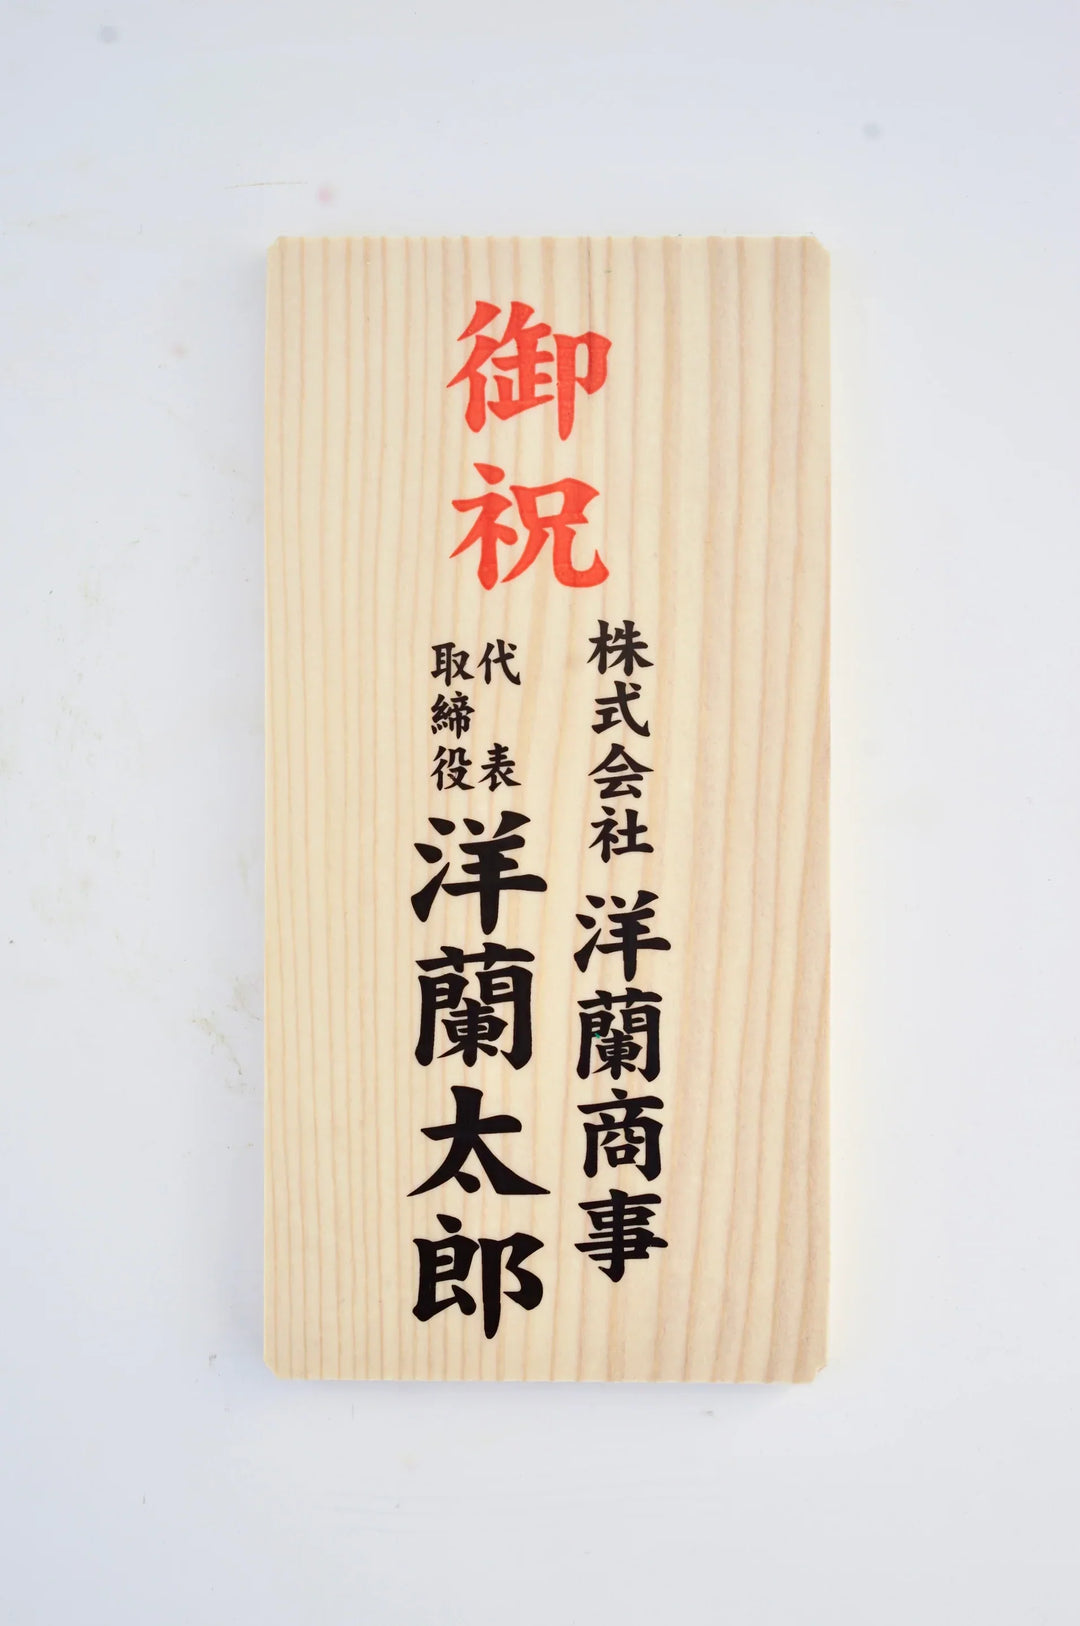 御祝
株式会社 洋蘭商事
代表
取締役
洋蘭太郎